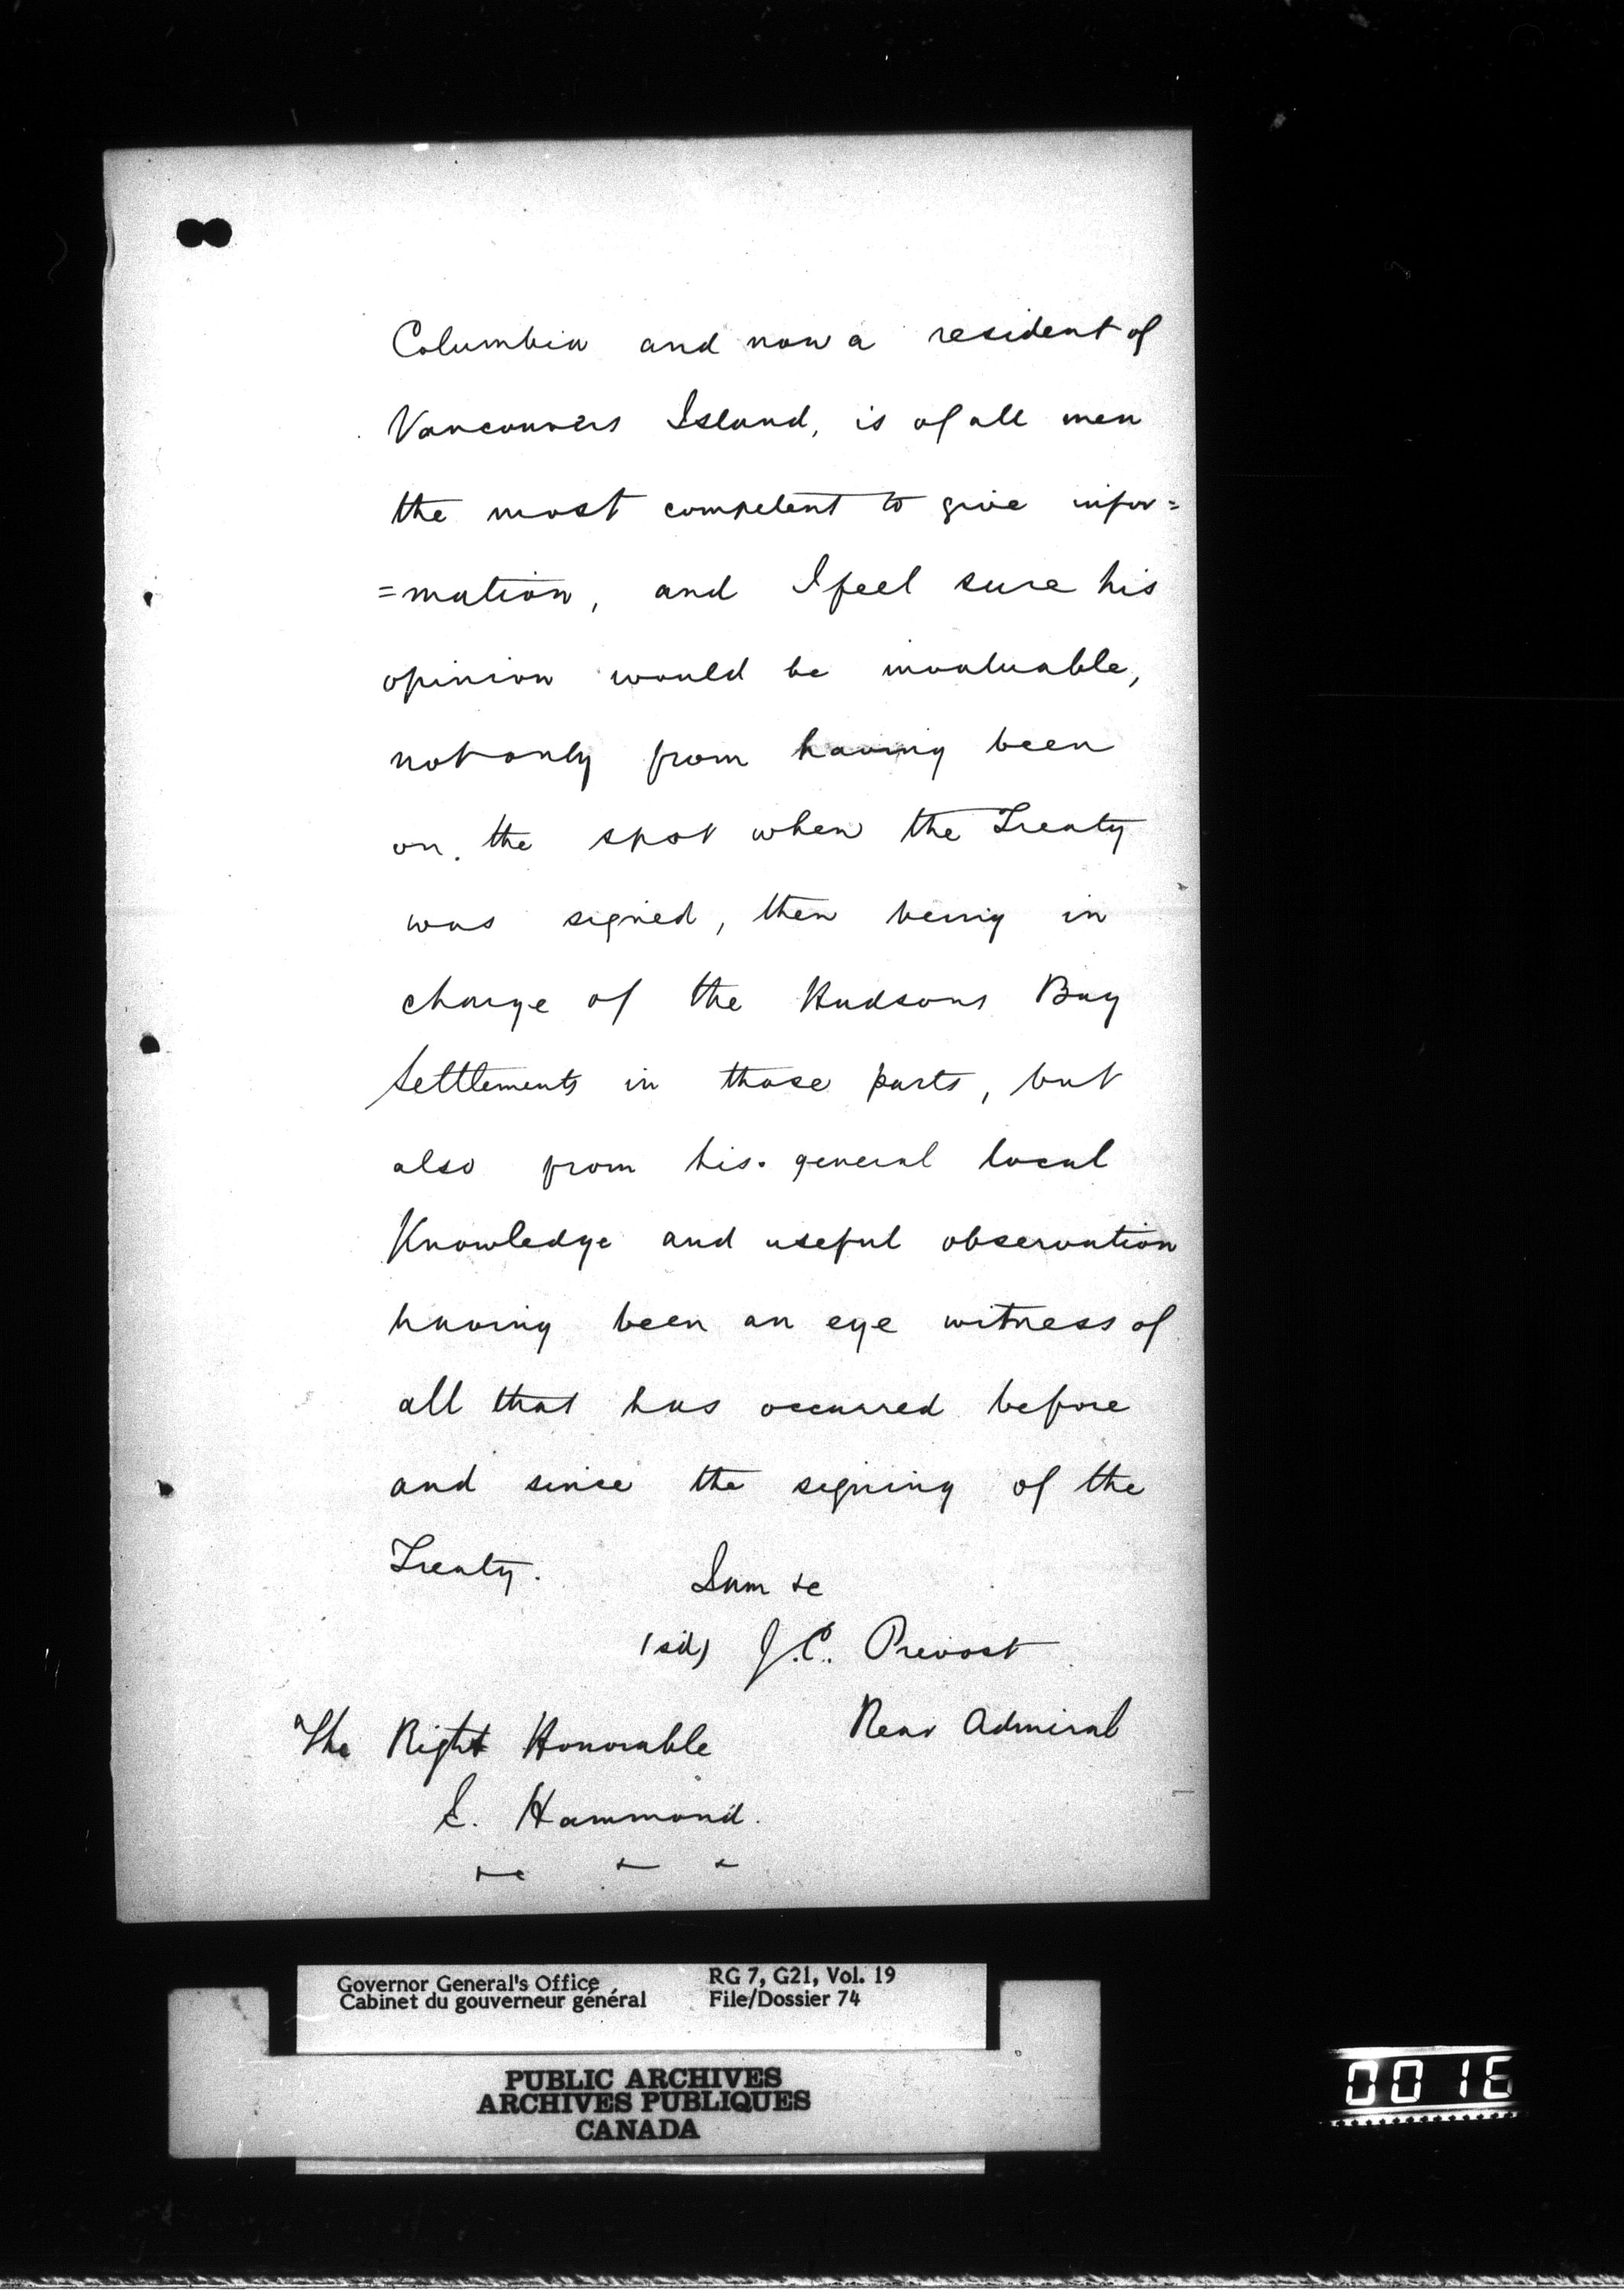 Columbia and now a resident of
Vancouvers Island, is of all men
the most competent to give infor=
=mation, and I feel sure his
opinion would be invaluable,
not only from having been
on the spot when the Treaty
was signed, then being in
charge of the Hudsons Bay
Settlements in those parts, but
also from his general local
Knowledge and useful observation
having been an eye witness of
all that has occurred before
and since the signing of the
Treaty.
I am &c
(sd) J.C. Prevost
Rear Admiral
The Right Honorable
E. Hammond.
&c
Governor General's Office
Cabinet du gouverneur général
RG 7, G21, Vol. 19
File/Dossier 74
PUBLIC ARCHIVES
ARCHIVES PUBLIQUES
CANADA
0016